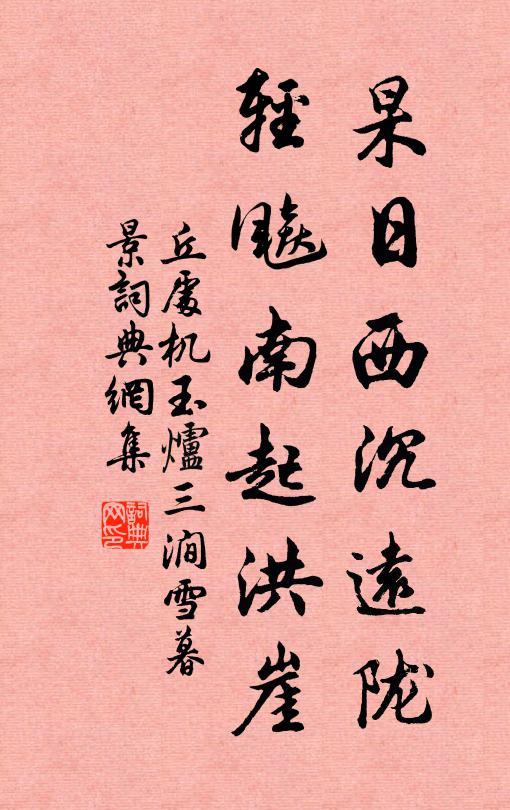 杲日西沉遠陇
輕飈南起洪崖
丘處机玉爐三澗雪暮
景詞典網集
詞典
网印